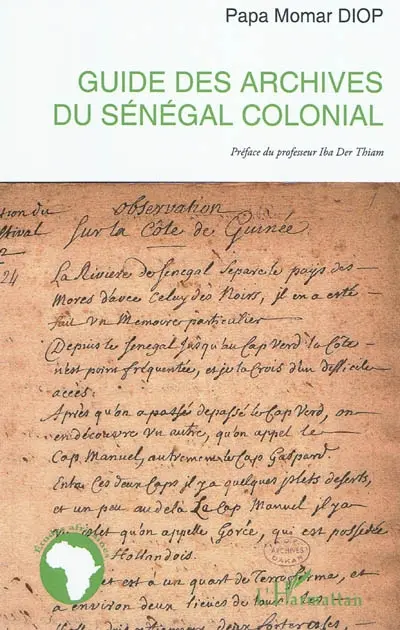 Papa Momar DIOP
GUIDE DES ARCHIVES
DU SÉNÉGAL COLONIAL
Préface du professeur Iba Der Thiam
observation
Sur la Côte de Guinée
24
La Riviere de Senegal Separe le pays des
Mores d'avec Celuy des Noirs, il en a esté
fait un Memoire particulier
Depuis le Senegal Jusqu'au Cap Verd la Côte
n'est point frequentée, et je la Crois d'un difficile
accés.
Après qu'on a passé depassé le Cap Verd, on
en découvre un autre, qu'on appel le
Cap Manuel, autrement le Cap Gaspard.
Entre Ces deux Caps il y a quelques Islets deserts,
et un peu au delà Le Cap Manuel il y a
Islet qu'on appelle Gorée, qui est possedée
Hollandois.
et est a un quart de Terre ferme, et
a environ deux lieües de tour
deux
ARCHIVES
DAKAR
Études africaines
L'Harmattan